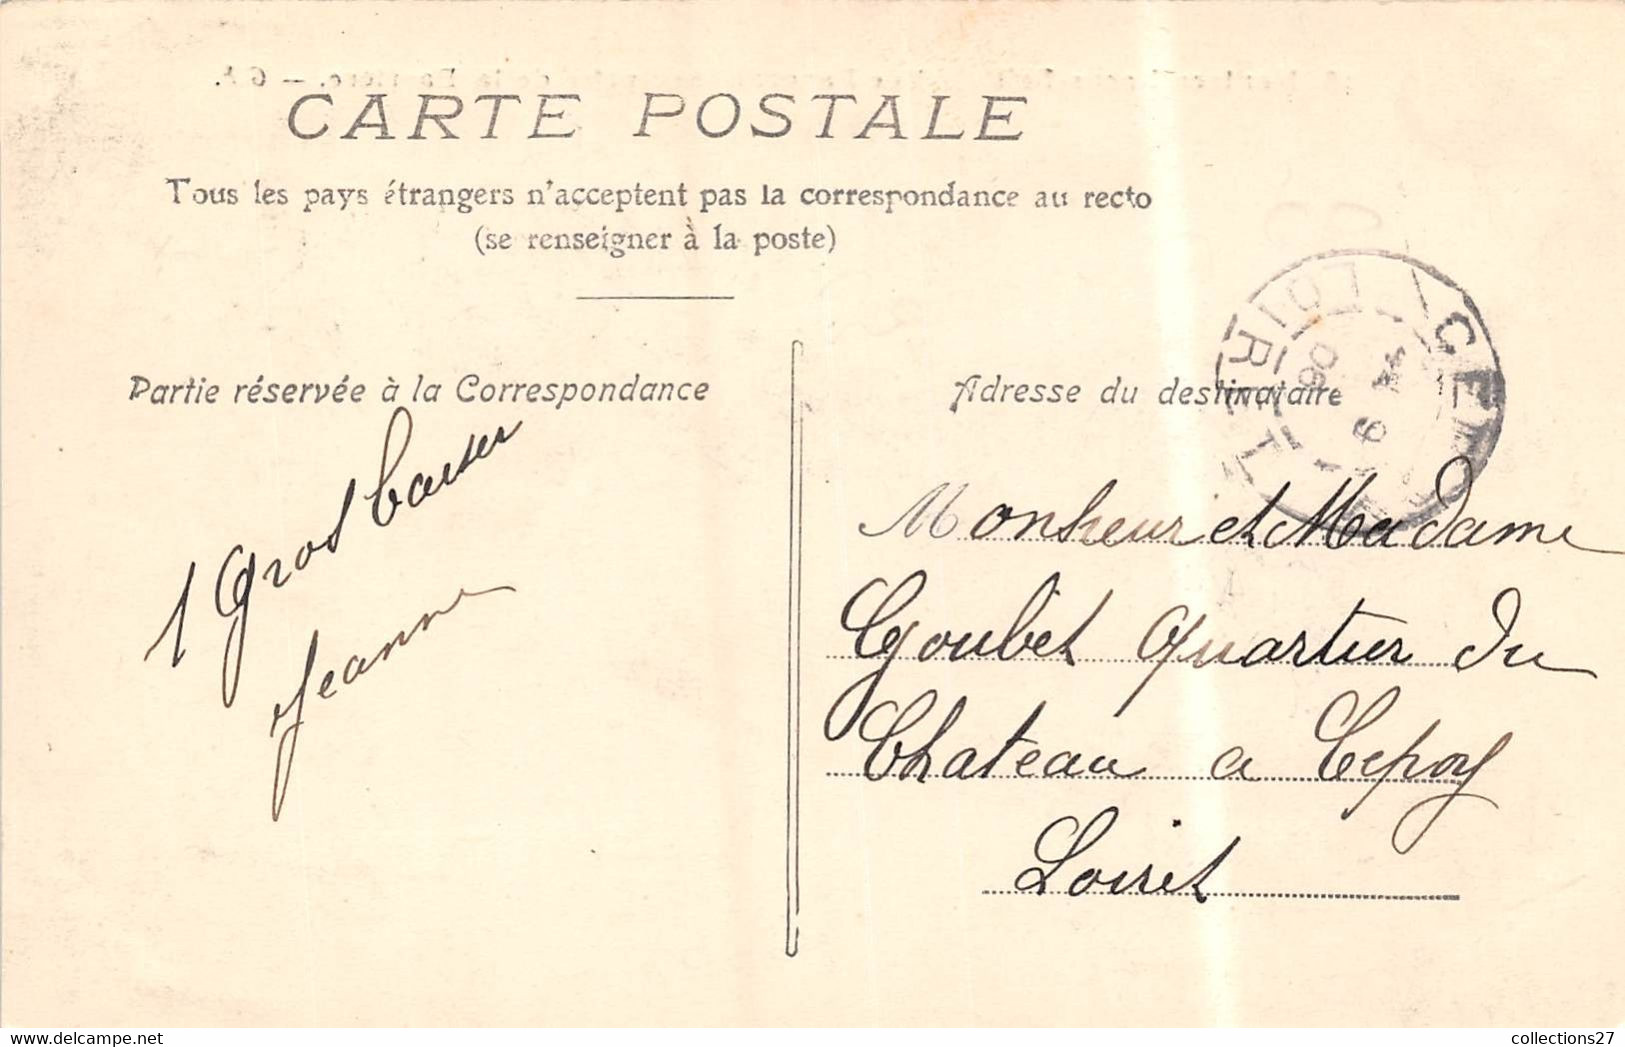 CARTE POSTALE
Tous les pays étrangers n'acceptent pas la correspondance au recto
(se renseigner à la poste)
Partie réservée à la Correspondance
1 gros baiser
Jeanne
Adresse du destinataire
LOIRET
14 9
06
Monsieur et Madame
Goubet quartier du
Chateau a Cepoy
Loiret
collections27